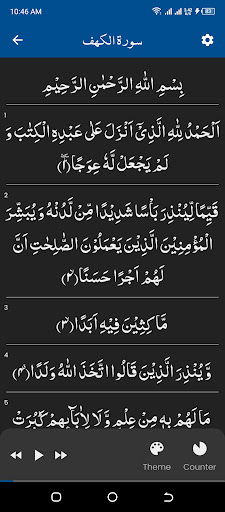 10:46 AM
سورة الكهف
بِسْمِ اللّٰهِ الرَّحْمٰنِ الرَّحِيْمِ
1
اَلْحَمْدُ لِلّٰهِ الَّذِيْٓ اَنْزَلَ عَلٰى عَبْدِهِ الْكِتٰبَ وَ
لَمْ يَجْعَلْ لَّهٗ عِوَجًا(۱)
2
قَيِّمًا لِّيُنْذِرَ بَاْسًا شَدِيْدًا مِّنْ لَّدُنْهُ وَ يُبَشِّرَ
الْمُؤْمِنِيْنَ الَّذِيْنَ يَعْمَلُوْنَ الصّٰلِحٰتِ اَنَّ
لَهُمْ اَجْرًا حَسَنًا(۲)
3
مَّاكِثِيْنَ فِيْهِ اَبَدًا(۳)
4
وَّ یُنْذِرَ الَّذِيْنَ قَالُوا اتَّخَذَ اللّٰهُ وَلَدًا(۴)
5
مَا لَهُمْ بِهٖ مِنْ عِلْمٍ وَّ لَا لِاٰبَآىٕهِمْ كَبُرَتْ
Theme
Counter